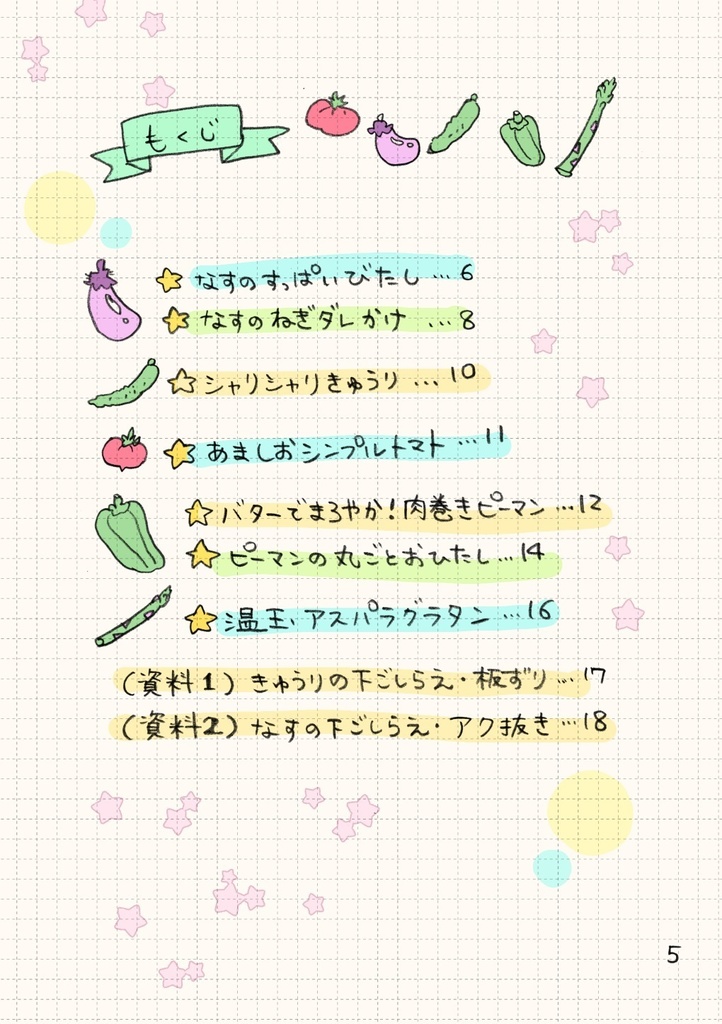 もくじ
なすのすっぱいびたし…6
なすのねぎダレかけ…8
シャリシャリきゅうり…10
あましおシンプルトマト…11
バターでまろやか!肉巻きピーマン…12
ピーマンの丸ごとおひたし…14
温玉アスパラグラタン…16
(資料1)きゅうりの下ごしらえ・板ずり…17
(資料2)なすの下ごしらえ・アク抜き…18
5